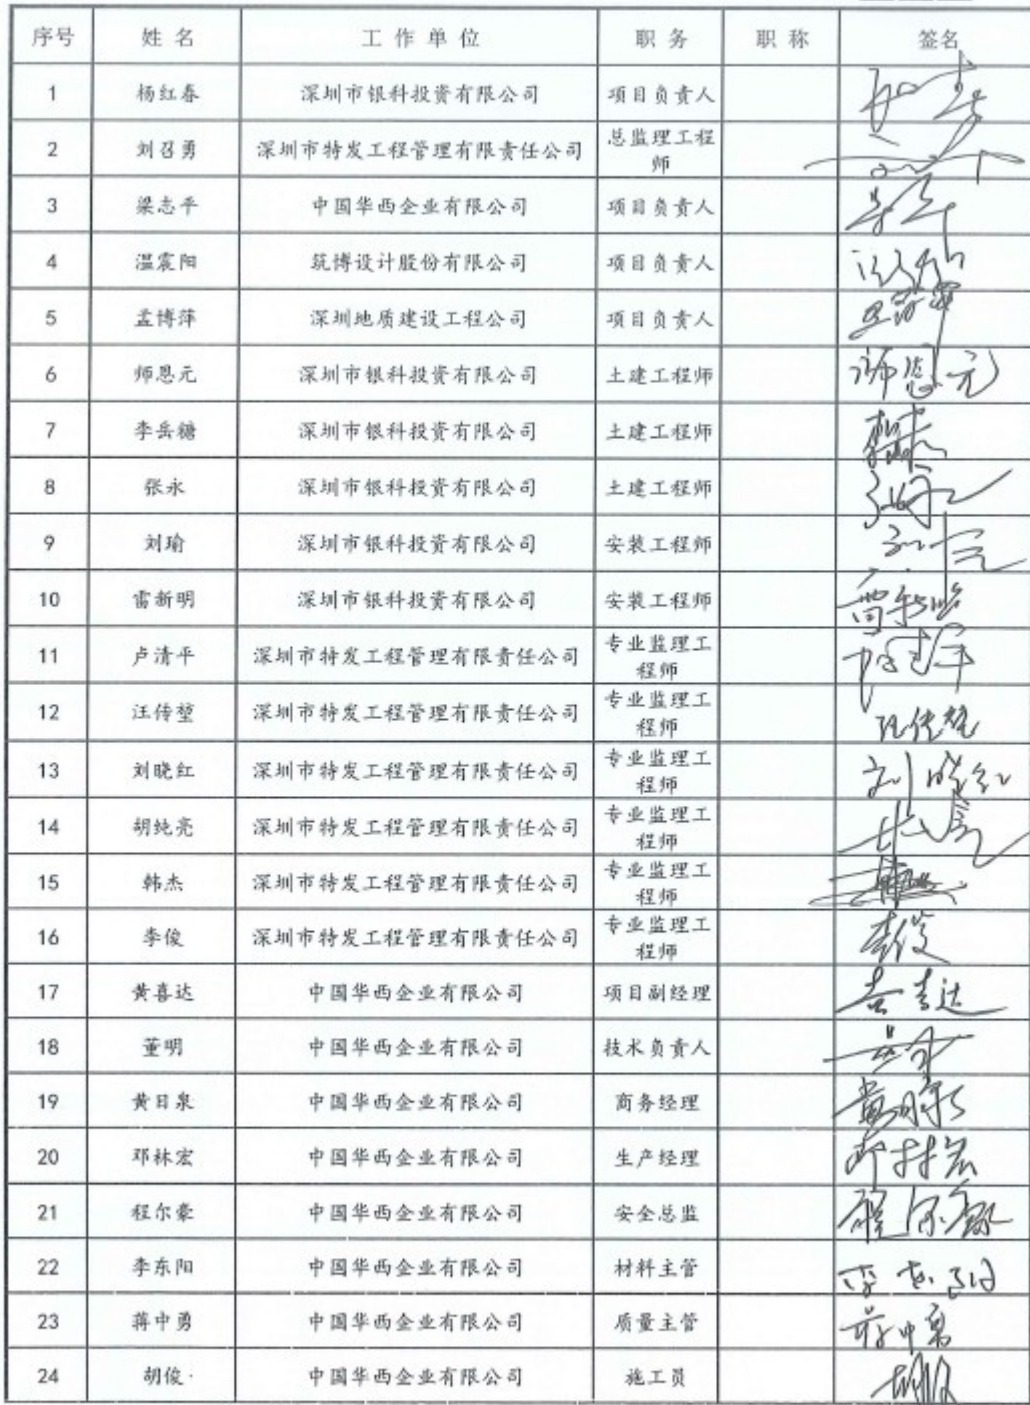 序号 姓名 工作单位 职务 职称 签名
1 杨红春 深圳市银科投资有限公司 项目负责人
2 刘召勇 深圳市特发工程管理有限责任公司 总监理工程
师
3 梁志平 中国华西企业有限公司 项目负责人
4 温震阳 筑博设计股份有限公司 项目负责人
5 孟博萍 深圳地质建设工程公司 项目负责人
6 师恩元 深圳市银科投资有限公司 土建工程师 师恩元
7 李岳糖 深圳市银科投资有限公司 土建工程师
8 张永 深圳市银科投资有限公司 土建工程师 张永
9 刘瑜 深圳市银科投资有限公司 安装工程师
10 雷新明 深圳市银科投资有限公司 安装工程师 雷新明
11 卢清平 深圳市特发工程管理有限责任公司 专业监理工
程师
12 汪传堃 深圳市特发工程管理有限责任公司 专业监理工
程师 汪传堃
13 刘晓红 深圳市特发工程管理有限责任公司 专业监理工
程师 刘晓红
14 胡纯亮 深圳市特发工程管理有限责任公司 专业监理工
程师
15 韩杰 深圳市特发工程管理有限责任公司 专业监理工
程师
16 李俊 深圳市特发工程管理有限责任公司 专业监理工
程师 李俊
17 黄喜达 中国华西企业有限公司 项目副经理 黄喜达
18 董明 中国华西企业有限公司 技术负责人
19 黄日泉 中国华西企业有限公司 商务经理 黄日泉
20 邓林宏 中国华西企业有限公司 生产经理 邓林宏
21 程尔豪 中国华西企业有限公司 安全总监 程尔豪
22 李东阳 中国华西企业有限公司 材料主管 李东阳
23 蒋中勇 中国华西企业有限公司 质量主管 蒋中勇
24 胡俊 中国华西企业有限公司 施工员 胡俊